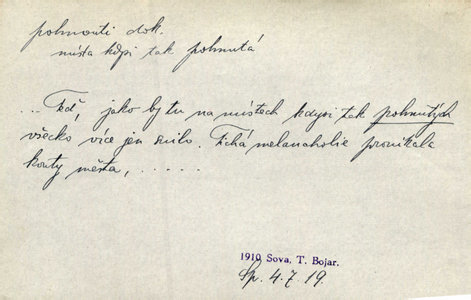 pohnouti dok.
místa kdysi tak pohnutá
... Teď, jako by tu na místech kdysi tak pohnutých
všecko více jen snilo. Tichá melancholie pronikala
kouty města, .....
1910 Sova, T. Bojar.
Sp. 4. 7 19.